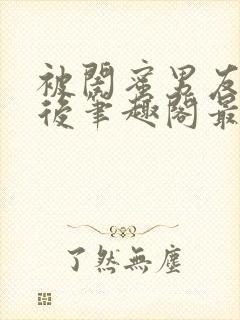 被閣蜜男友
後筆趣閣最
了然無塵